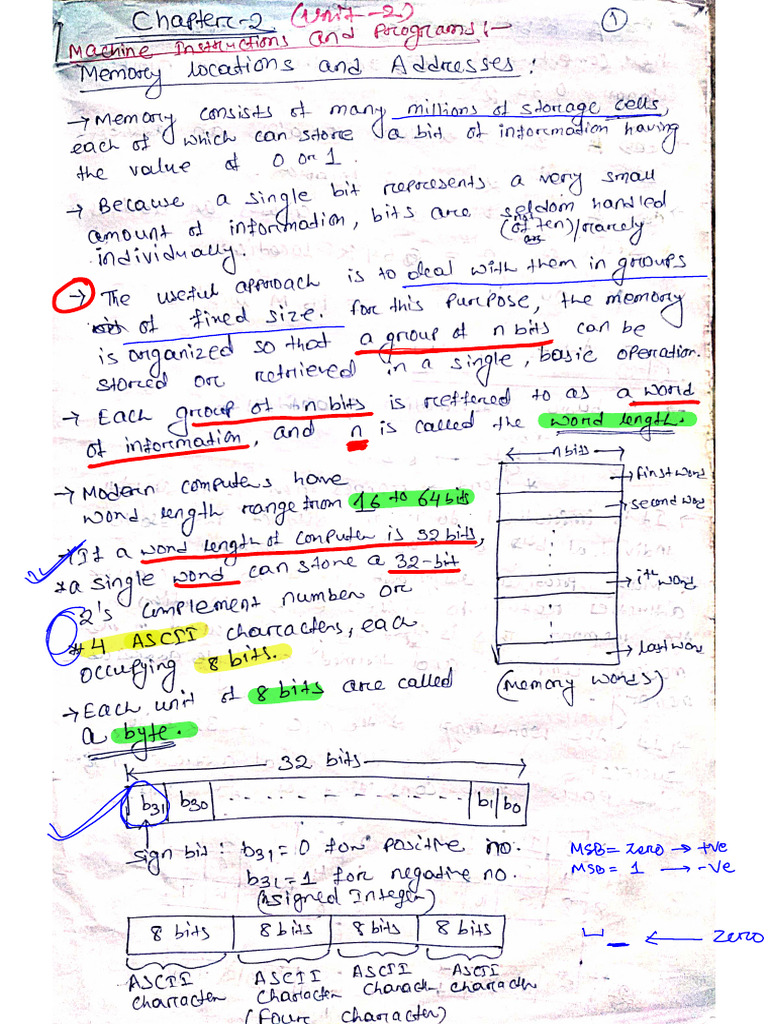 Chapter-2 (Unit-2)
1
Machine Instructions and Programs:-
Memory locations and Addresses:
→ Memory consists of many millions of storage cells,
each of which can store a bit of information having
the value of 0 or 1.
→ Because a single bit represents a very small
amount of information, bits are seldom handled
(not often)/rarely
individually.
→ The useful approach is to deal with them in groups
of fixed size. for this purpose, the memory
is organized so that a group of n bits can be
stored or retrieved in a single, basic operation.
→ Each group of n bits is reffered to as a word
of information, and n is called the word length.
→ Modern computers have
word length range from 16 to 64 bits
→ If a word length of computer is 32 bits,
* a single word can store a 32-bit
2's complement number or
* 4 ASCII characters, each
occupying 8 bits.
→ Each unit of 8 bits are called
a byte.
n bits
first word
second word
ith word
last word
(Memory words)
32 bits
b31 b30 - - - - - - - b1 b0
sign bit: b31 = 0 for positive no.
b31 = 1 for negative no.
(Signed Integer)
MSB = zero → +ve
MSB = 1 → -ve
8 bits 8 bits 8 bits 8 bits
← zero
ASCII character ASCII character ASCII character ASCII character
(four character)